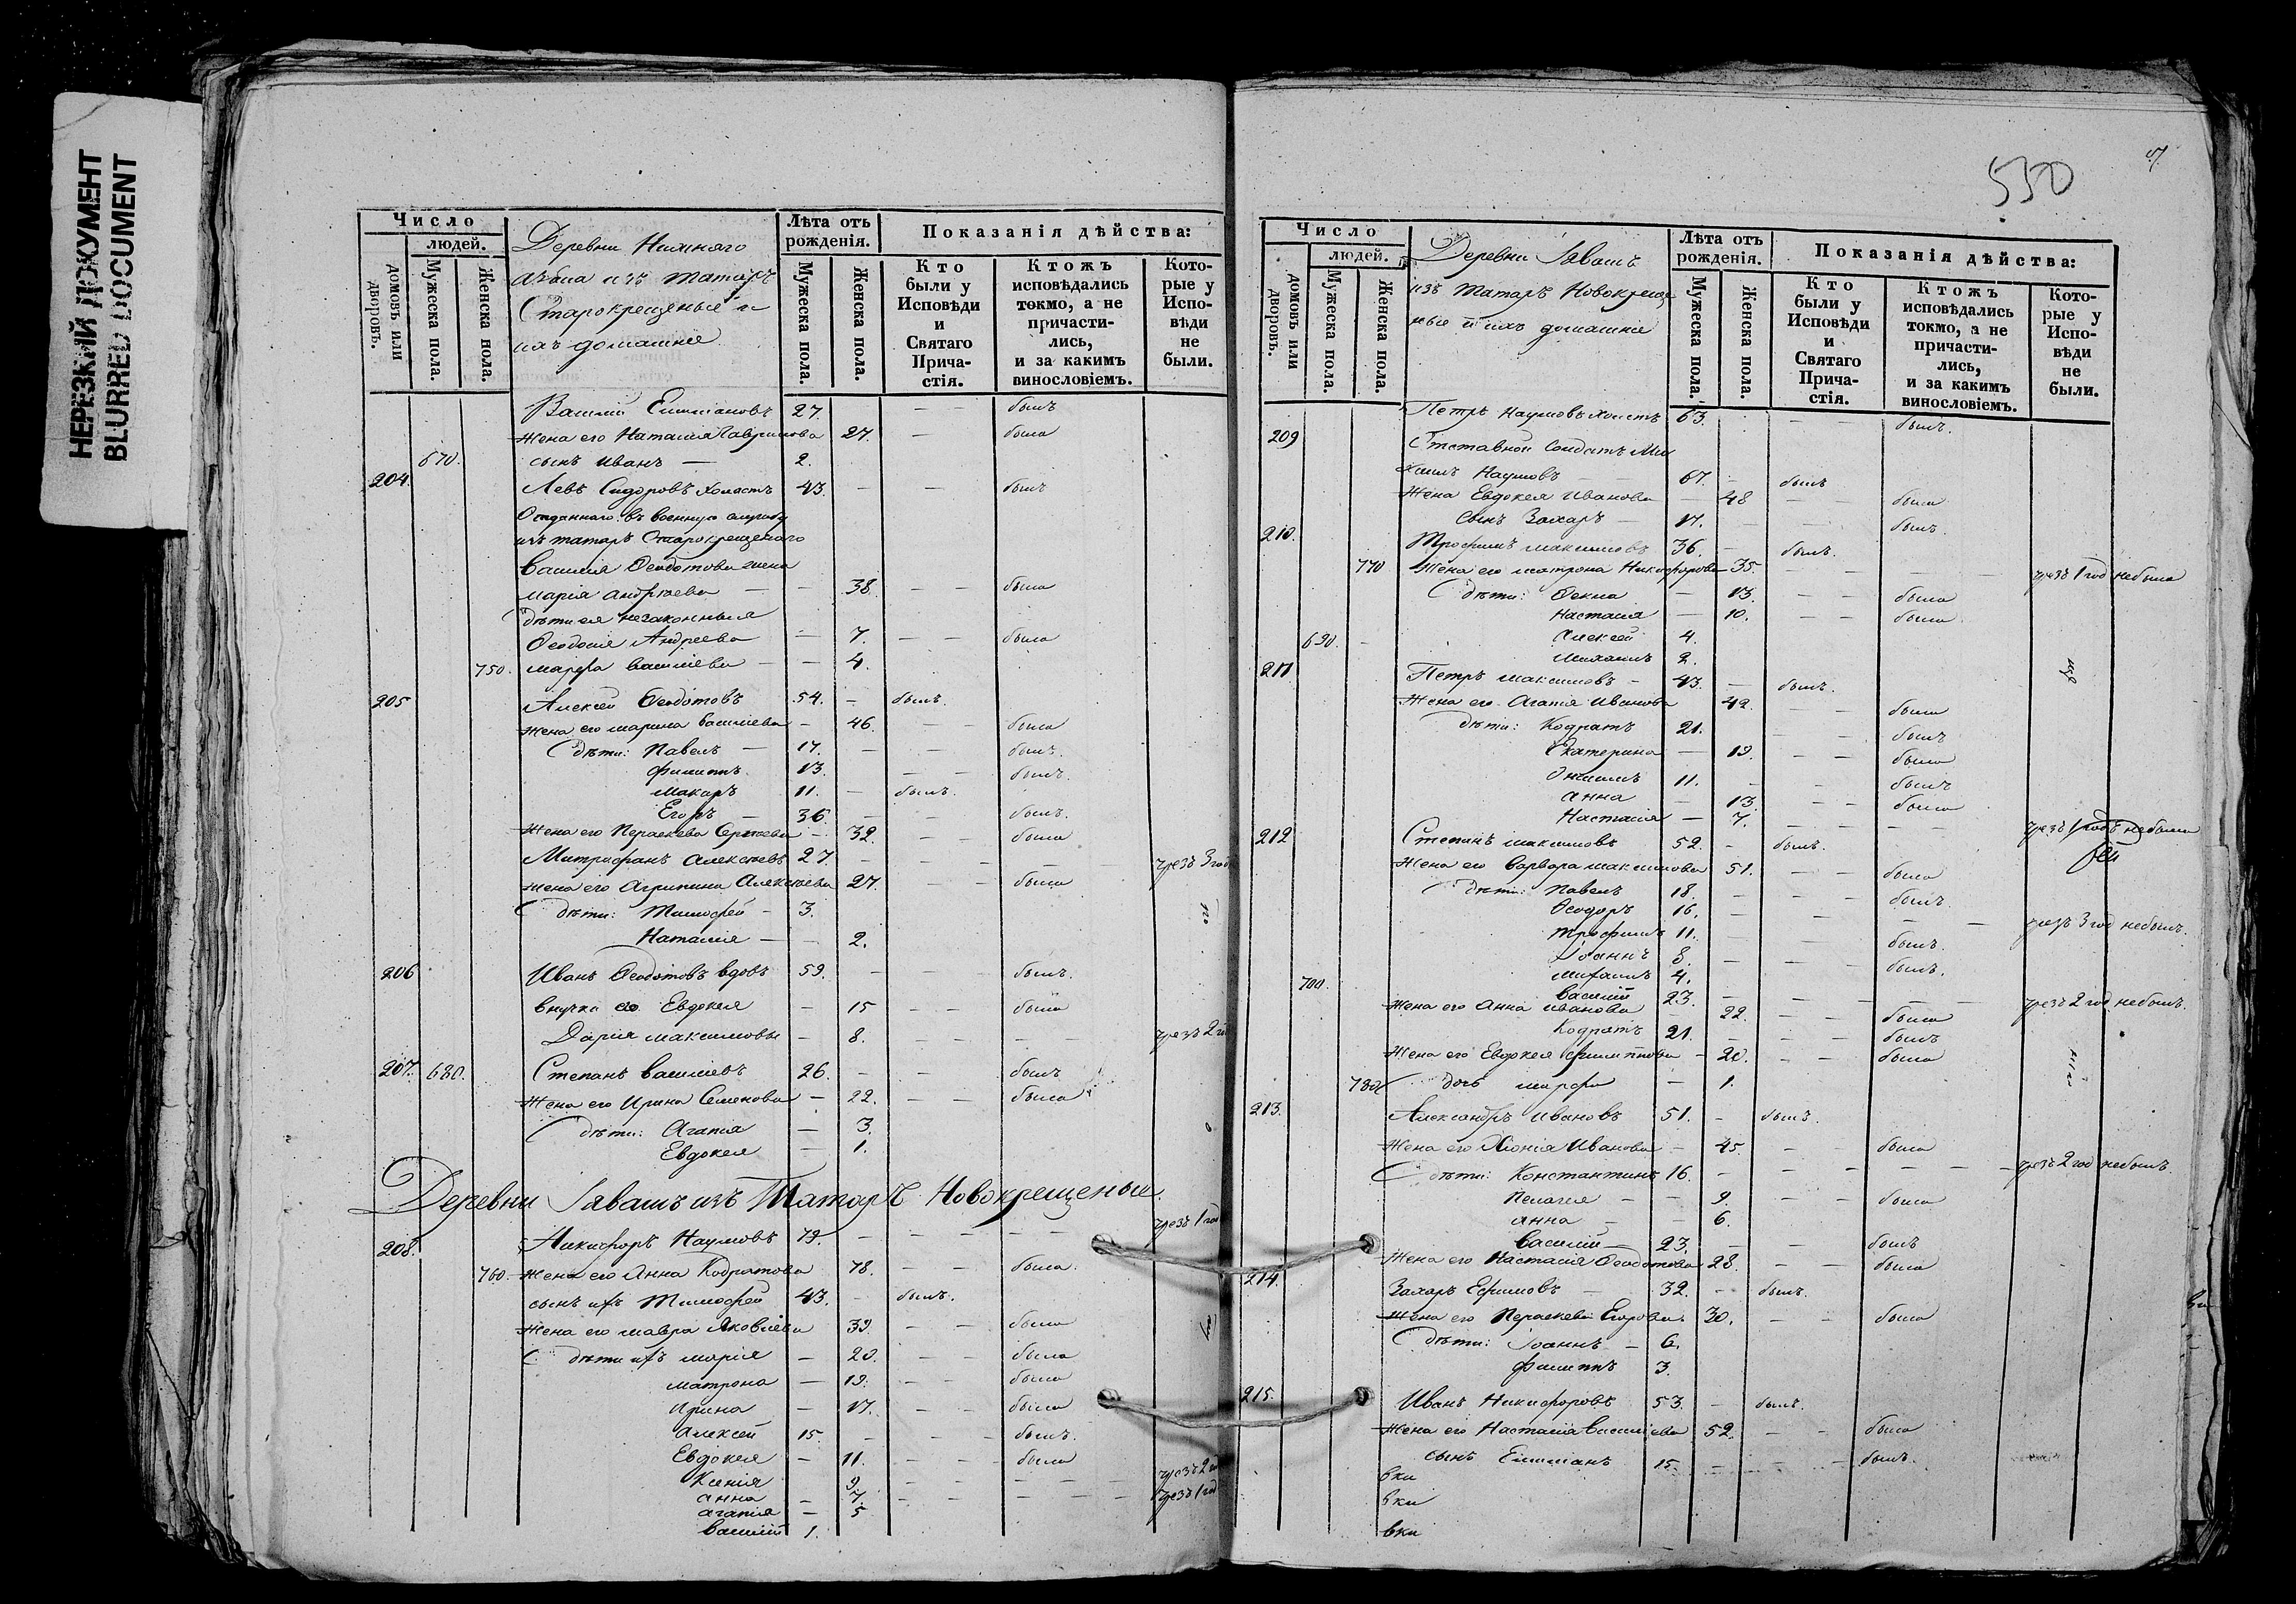 НЕРЕЗКИЙ ДОКУМЕНТ
BLURRED DOCUMENT
Число
людей.
домовъ или дворовъ.
Мужеска пола.
Женска пола.
Деревни Нижняго
изъ татаръ
Старокрещеные и
ихъ домашніе
Лѣта отъ рожденія.
Мужеска пола.
Женска пола.
Показанія дѣйства:
Кто были у Исповѣди и Святаго Прича-стія.
Ктожъ исповѣдались токмо, а не причасти-лись, и за какимъ винословіемъ.
Кото-рые у Испо-вѣди не были.
Василій Емиліановъ 27. — — былъ
жена его Наталія Гаврилова 27. — была
670. сынъ Иванъ — 2.
204. Левъ Сидоровъ холостъ 43. — — былъ
Отданнаго въ военную службу
изъ татаръ Старокрещенаго
Василия Ѳеодотова жена
марія андрѣева — — 38 — была
дѣти ея незаконныя
Ѳеодосія Андреева — 7. — — была
750. марѳа василіева — — 4.
205 Алексѣй Ѳеодотовъ 54. — былъ.
жена его марина василіева — 46. — — была
дѣти: Павелъ — 17. — — былъ.
филиппъ 13. — — былъ.
макаръ 11. — былъ.
Егоръ — 36. — — былъ.
жена его Параскева Сергѣева — 32. — — была
Митрофанъ Алексѣевъ 27. — — — — чрезъ 3 год
жена его Агрипина Алексѣева 27. — — была
дѣти: Тимофей — 3.
Наталія — — 2.
206 Иванъ Ѳеодотовъ вдовъ 59. — — былъ.
внучки его Евдокея — 15 — — была
Дарія максимовы — 8. — — — — чрезъ 2 го
207. 680. Степанъ василіевъ 26. — — былъ
жена его Ирина Семенова — 22. — — была
дѣти: Агапія — 3.
Евдокея — 1.
Деревни Савашъ изъ Татаръ Новокрещеные.
208. Никифоръ Наумовъ 79. — — — — чрезъ 1 год
760. жена его Анна Кодратова 78. — — была.
сынъ ихъ Тимофей 43. — былъ.
жена его мавра Яковлева 39. — — была
дѣти ихъ марія — 20. — — была
матрона — 19. — — была
Ирина — 17. — — была
алексѣй 15. — — былъ.
Евдокея — 11. — — была
Ксенія 9. — — — — чрезъ 2 го
анна — 7. — — — — чрезъ 1 год
агапія — 5
василій 1.
550
Число
людей.
домовъ или дворовъ.
Мужеска пола.
Женска пола.
Деревни Савашъ
изъ татаръ Новокреще
ные и ихъ домашніе
Лѣта отъ рожденія.
Мужеска пола.
Женска пола.
Показанія дѣйства:
Кто были у Исповѣди и Святаго Прича-стія.
Ктожъ исповѣдались токмо, а не причасти-лись, и за какимъ винословіемъ.
Кото-рые у Испо-вѣди не были.
Петръ наумовъ холостъ 63. — — былъ.
209 Отставной Солдатъ Ми
хаилъ Наумовъ — 67. — былъ
жена Евдокея иванова — 48 — была
сынъ Захаръ — 17. — — былъ
210. Трофимъ максимовъ 36. — былъ.
770 жена его матрона Никифорова 35. — — — — чрезъ 1 год небыла
дѣти: Ѳекла — 13. — — была
настасія — 10. — — была
690. — алексѣй 4.
михаилъ 2.
211 Петръ максимовъ — 43. — былъ.
жена его Агапія Иванова 42. — — была
дѣти: Кодратъ 21. — — былъ
Екатерина — 19. — — была
Онисимъ 11. — — былъ
анна — 13. — — была
Настасія — 7. — — — — чрезъ 1 годъ небыла
212 Степанъ максимовъ 52. — былъ.
жена его варвара максимова 51. — — была
дѣти: павелъ 18. — — былъ.
Ѳеодоръ 16. — — — — чрезъ 3 год небылъ.
трофимъ 11. — — былъ.
Іоаннъ 8. — — былъ.
700. михаилъ 4.
василій 23. — — — — чрезъ 2 год небылъ.
жена его анна иванова 22. — — была
Кодратъ 21. — — былъ
жена его Евдокея филиппова — 20. — — была
780 дочь марѳа — 1.
213. Александръ ивановъ 51. — былъ.
жена его Хіонія Иванова — 45. — — была
дѣти: Константинъ 16. — — — — чрезъ 2 год небылъ.
пелагея — — 9. — — была
анна — — 6.
василій — 23. — — былъ
жена его Настасія Ѳеодотова 28. — — была
214. Захаръ Ефимовъ — 32. — былъ.
жена его Параскева Егорова 30. — — была
дѣти: Іоаннъ — 6.
филиппъ 3.
215. Иванъ Никифоровъ 53. — былъ.
жена его Настасія василіева 52. — — была
сынъ Емиліанъ 15. — — былъ.